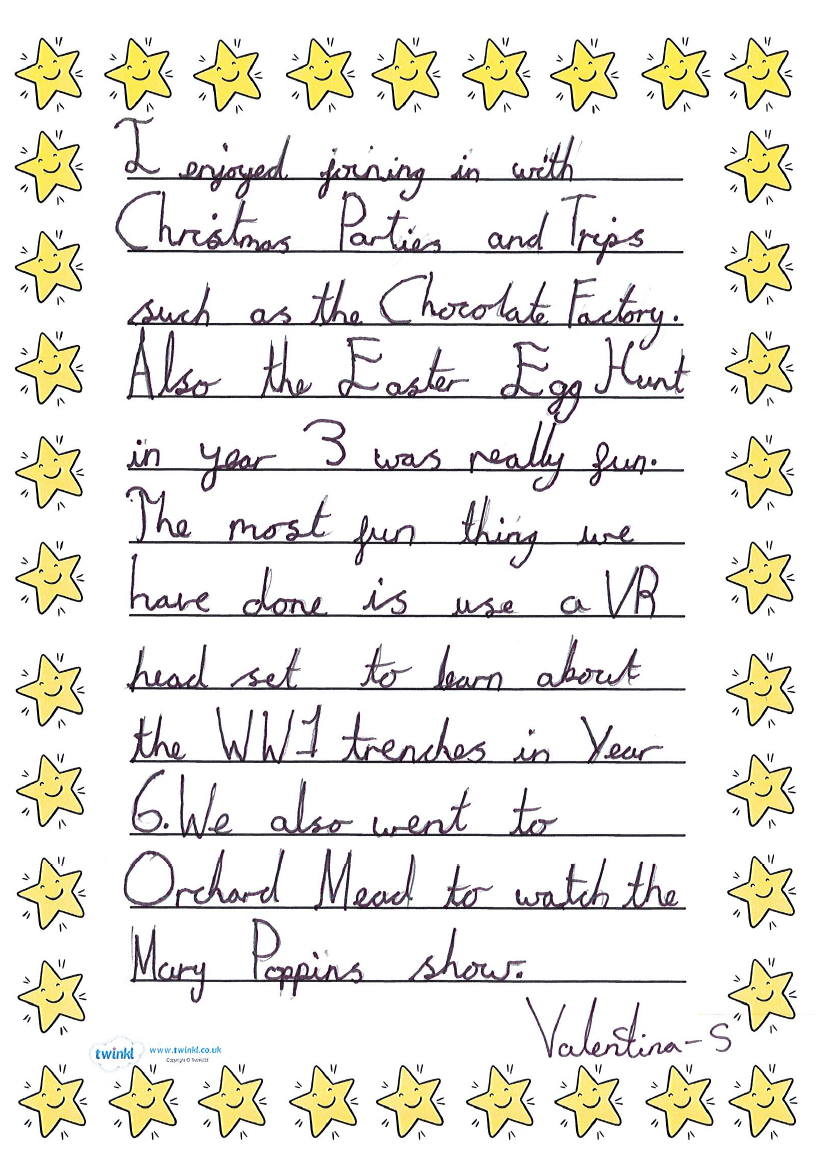 I enjoyed joining in with
Christmas Parties and Trips
such as the Chocolate Factory.
Also the Easter Egg Hunt
in year 3 was really fun.
The most fun thing we
have done is use a VR
head set to learn about
the WW1 trenches in Year
6. We also went to
Orchard Mead to watch the
Mary Poppins show.
Valentina - S
twinkl www.twinkl.co.uk
Copyright © TwinklLtd